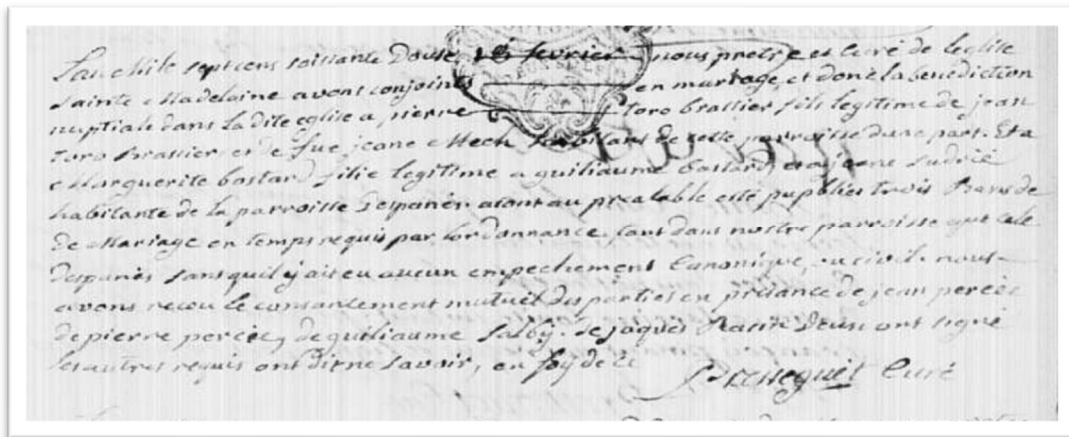 Lan Mile sept cens soissante Douse, 18 fevrier nous pretre et curé de leglise
sainte Madelaine avons conjoints en mariage, et doné la benediction
nuptiale dans la dite eglise a pierre toro brassier fils legitime de jean
toro brassier et de fue jeane habitans de cette parroisse dune part. Et a
Marguerite bastard filie legitime a guiliaume bastard, et a jeane sudrié
habitante de la parroisse despanés aiant au prealable esté pupplies trois Bans de
de Mariage en temps requis par lordonnance, tant dans nostre parroisse que cele
despanés sans quil y ait eu aucun empechement canonique, ou civil. nous
avons receu le consantement mutuel des parties en presance de jean percée
de pierre percée, de guiliaume de jaques Deux ont signé
les autres requis ont dit ne savoir, en foy de ce curé